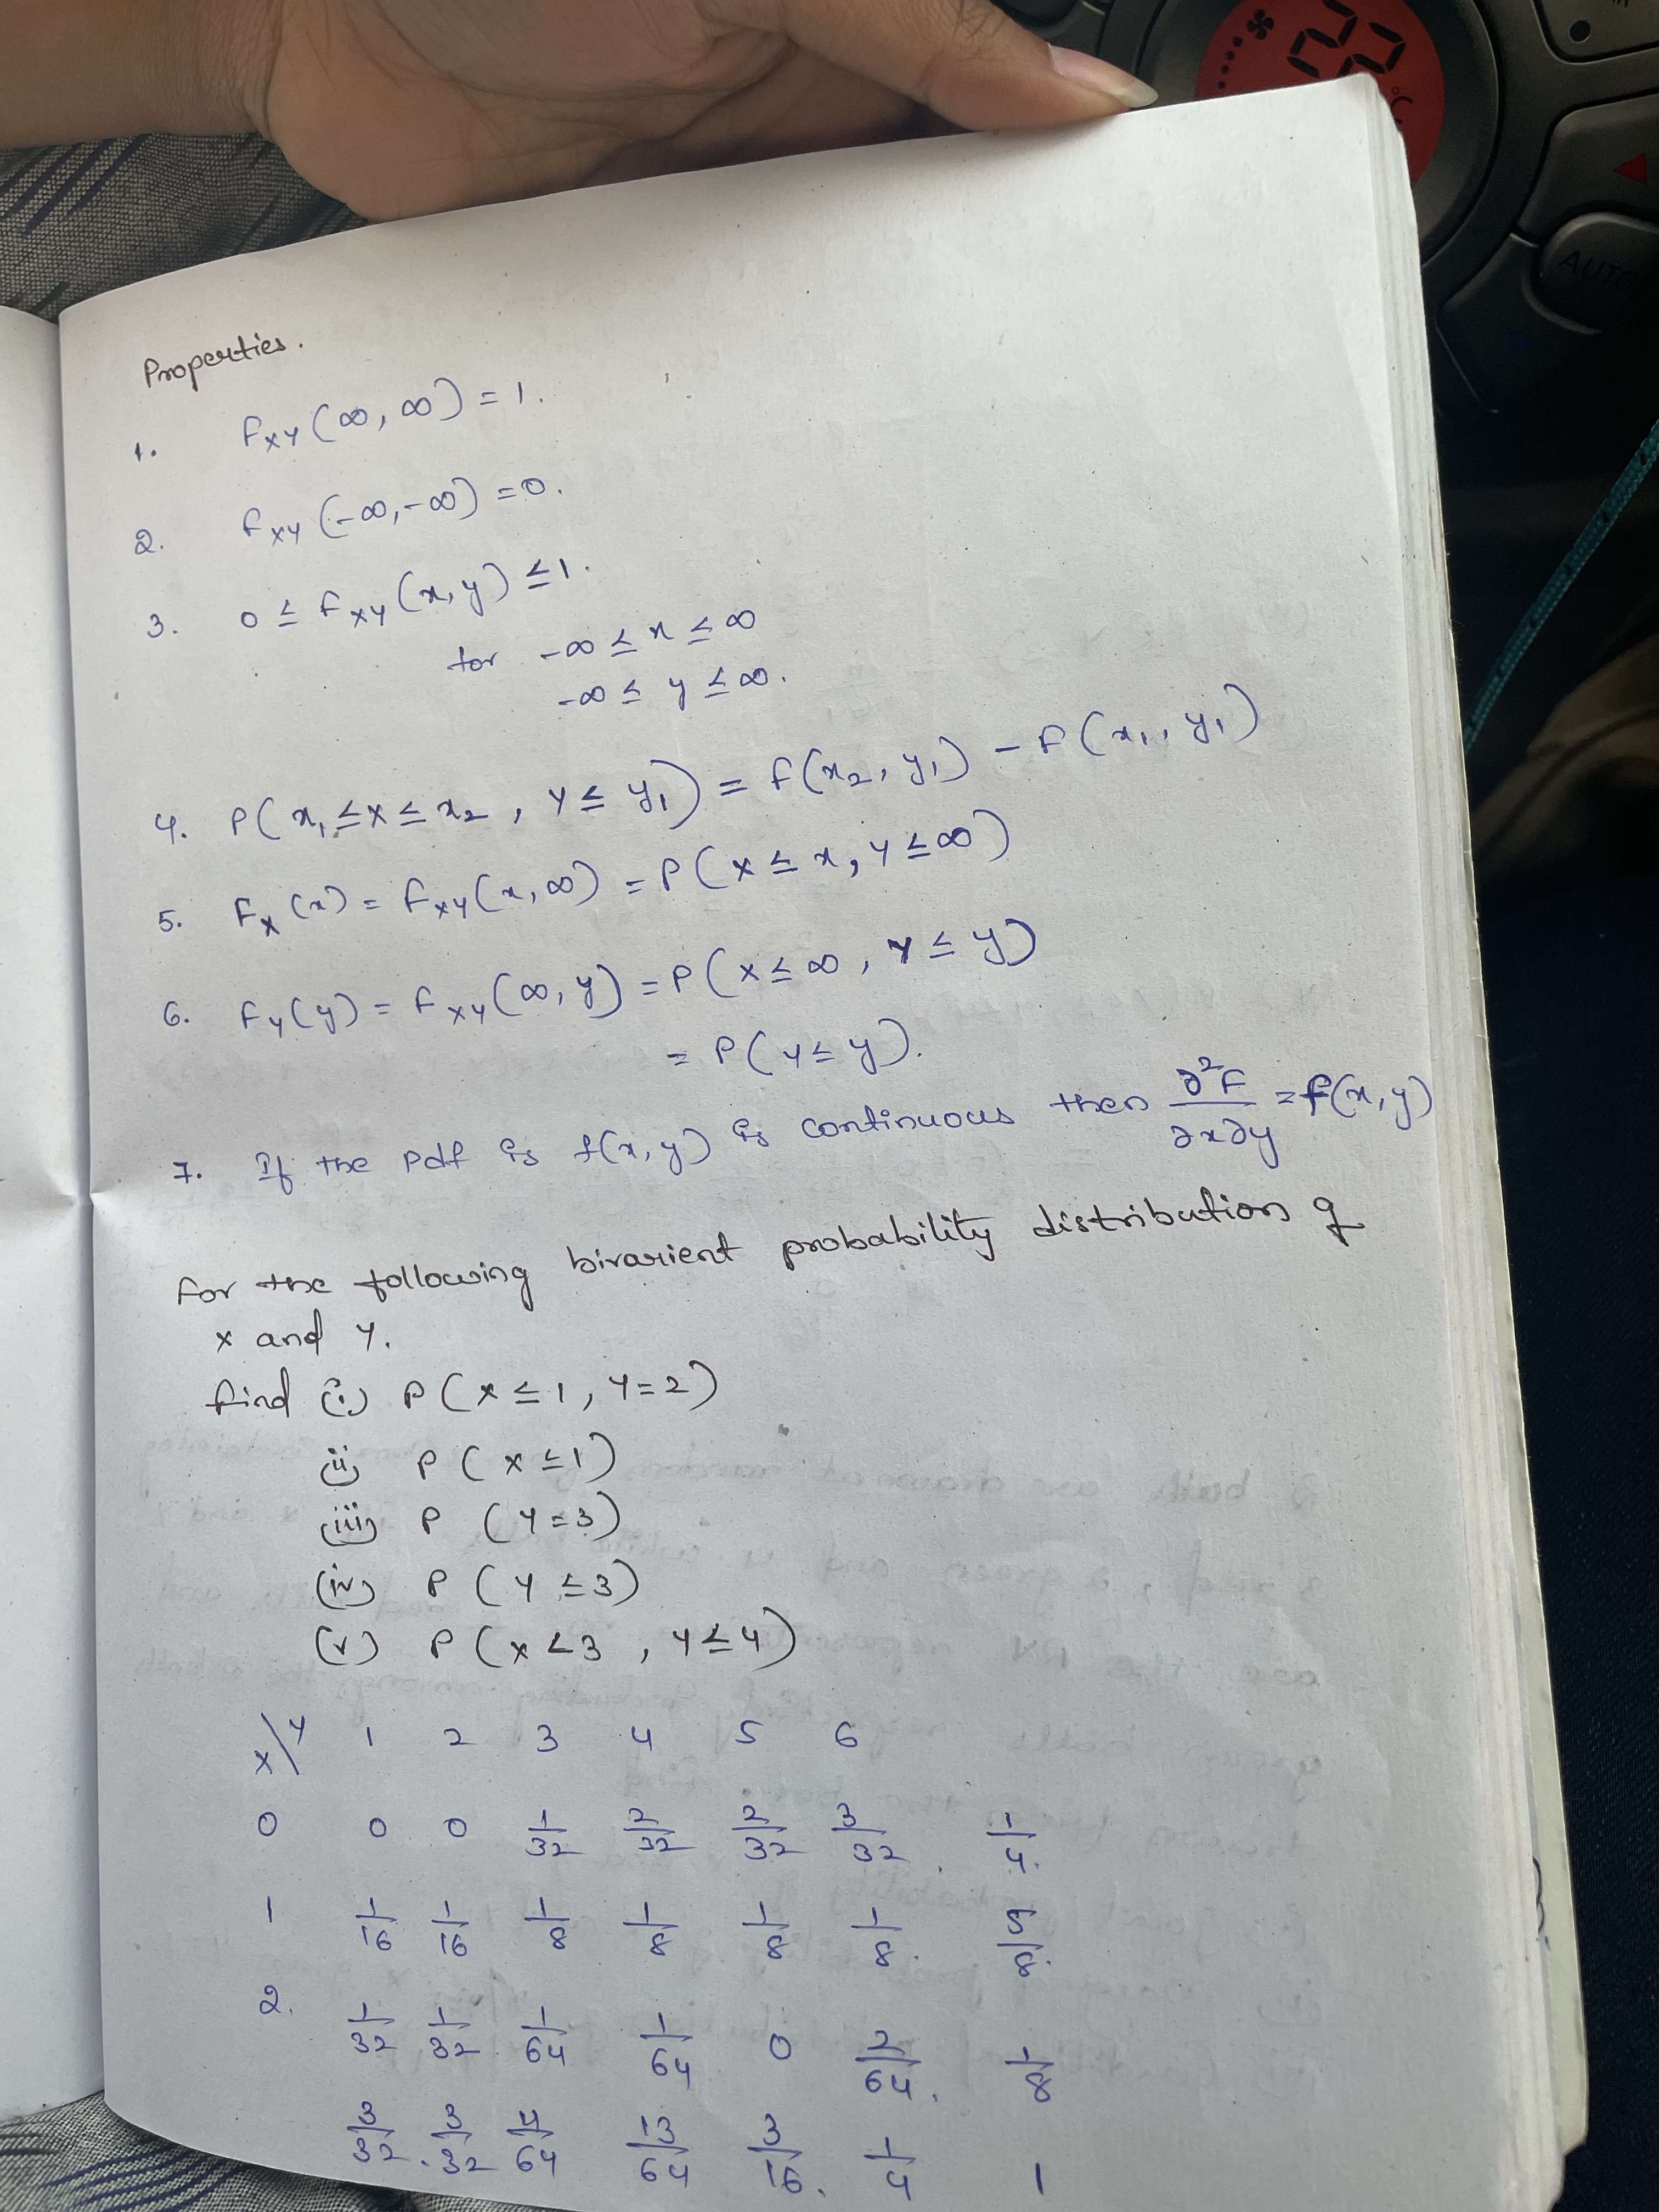 22
°C
AUTO
Properties.
1. F_XY (∞, ∞) = 1.
2. F_XY (-∞, -∞) = 0.
3. 0 ≤ F_XY (x, y) ≤ 1.
for -∞ ≤ x ≤ ∞
-∞ ≤ y ≤ ∞.
4. P(x₁ ≤ X ≤ x₂, Y ≤ y₁) = F(x₂, y₁) - F(x₁, y₁)
5. F_X (x) = F_XY (x, ∞) = P(X ≤ x, Y ≤ ∞)
6. F_Y (y) = F_XY (∞, y) = P(X ≤ ∞, Y ≤ y)
= P(Y ≤ y).
7. If the pdf is f(x, y) is continuous then ∂²F/∂x∂y = f(x, y)
For the following bivarient probability distribution of
X and Y.
find (i) P(X ≤ 1, Y = 2)
(ii) P(X ≤ 1)
(iii) P(Y = 3)
(iv) P(Y ≤ 3)
(v) P(X < 3, Y ≤ 4)
X/Y 1 2 3 4 5 6
0 0 0 1/32 2/32 2/32 3/32. 1/4.
1 1/16 1/16 1/8 1/8 1/8 1/8. 5/8.
2. 1/32 1/32 1/64 1/64 0 2/64. 1/8
3/32. 3/32 11/64 13/64 3/16. 1/4 1